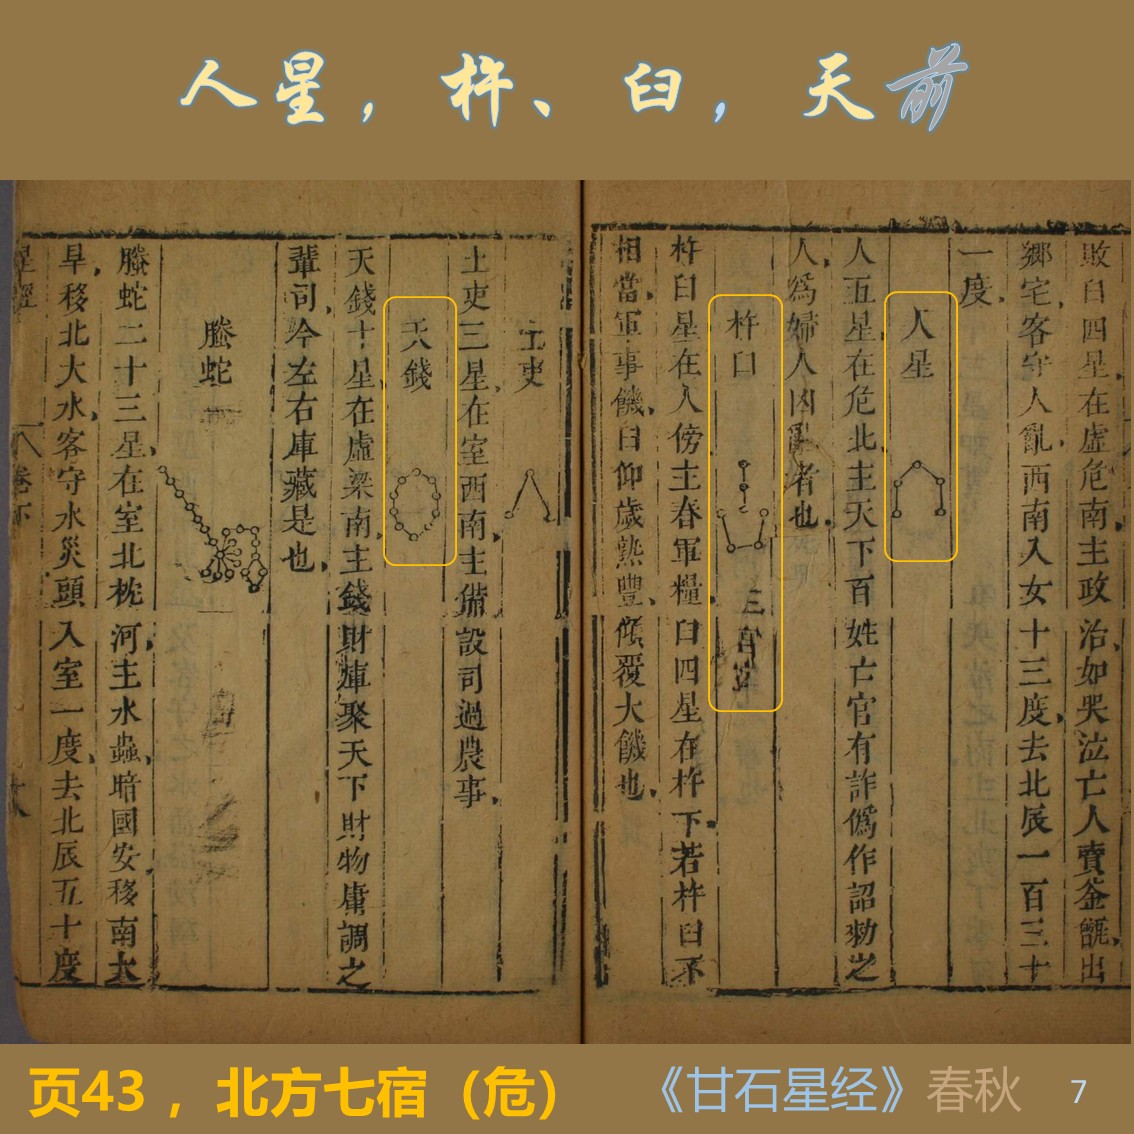 人星，杵、臼，天前
敗臼四星在虛危南主政治如哭泣亡人賣釜甑出
鄉宅客守人亂西南入女十三度去北辰一百三十
一度
人星
人五星在危北主天下百姓亡官有詐偽作詔勑之
人為婦人凶亂者也
杵臼
三官
杵臼星在人傍主春軍糧臼四星在杵下若杵臼不
相當軍事饑臼仰歲熟豐傾覆大饑也
土吏
土吏三星在室西南主備設司過農事
天錢
天錢十星在虛梁南主錢財庫聚天下財物庸調之
輩司今左右庫藏是也
螣蛇
螣蛇二十三星在室北枕河主水蟲暗國安移南大
旱移北大水客守水災頭入室一度去北辰五十度
星經
卷下
页43，北方七宿（危）
《甘石星经》春秋
7